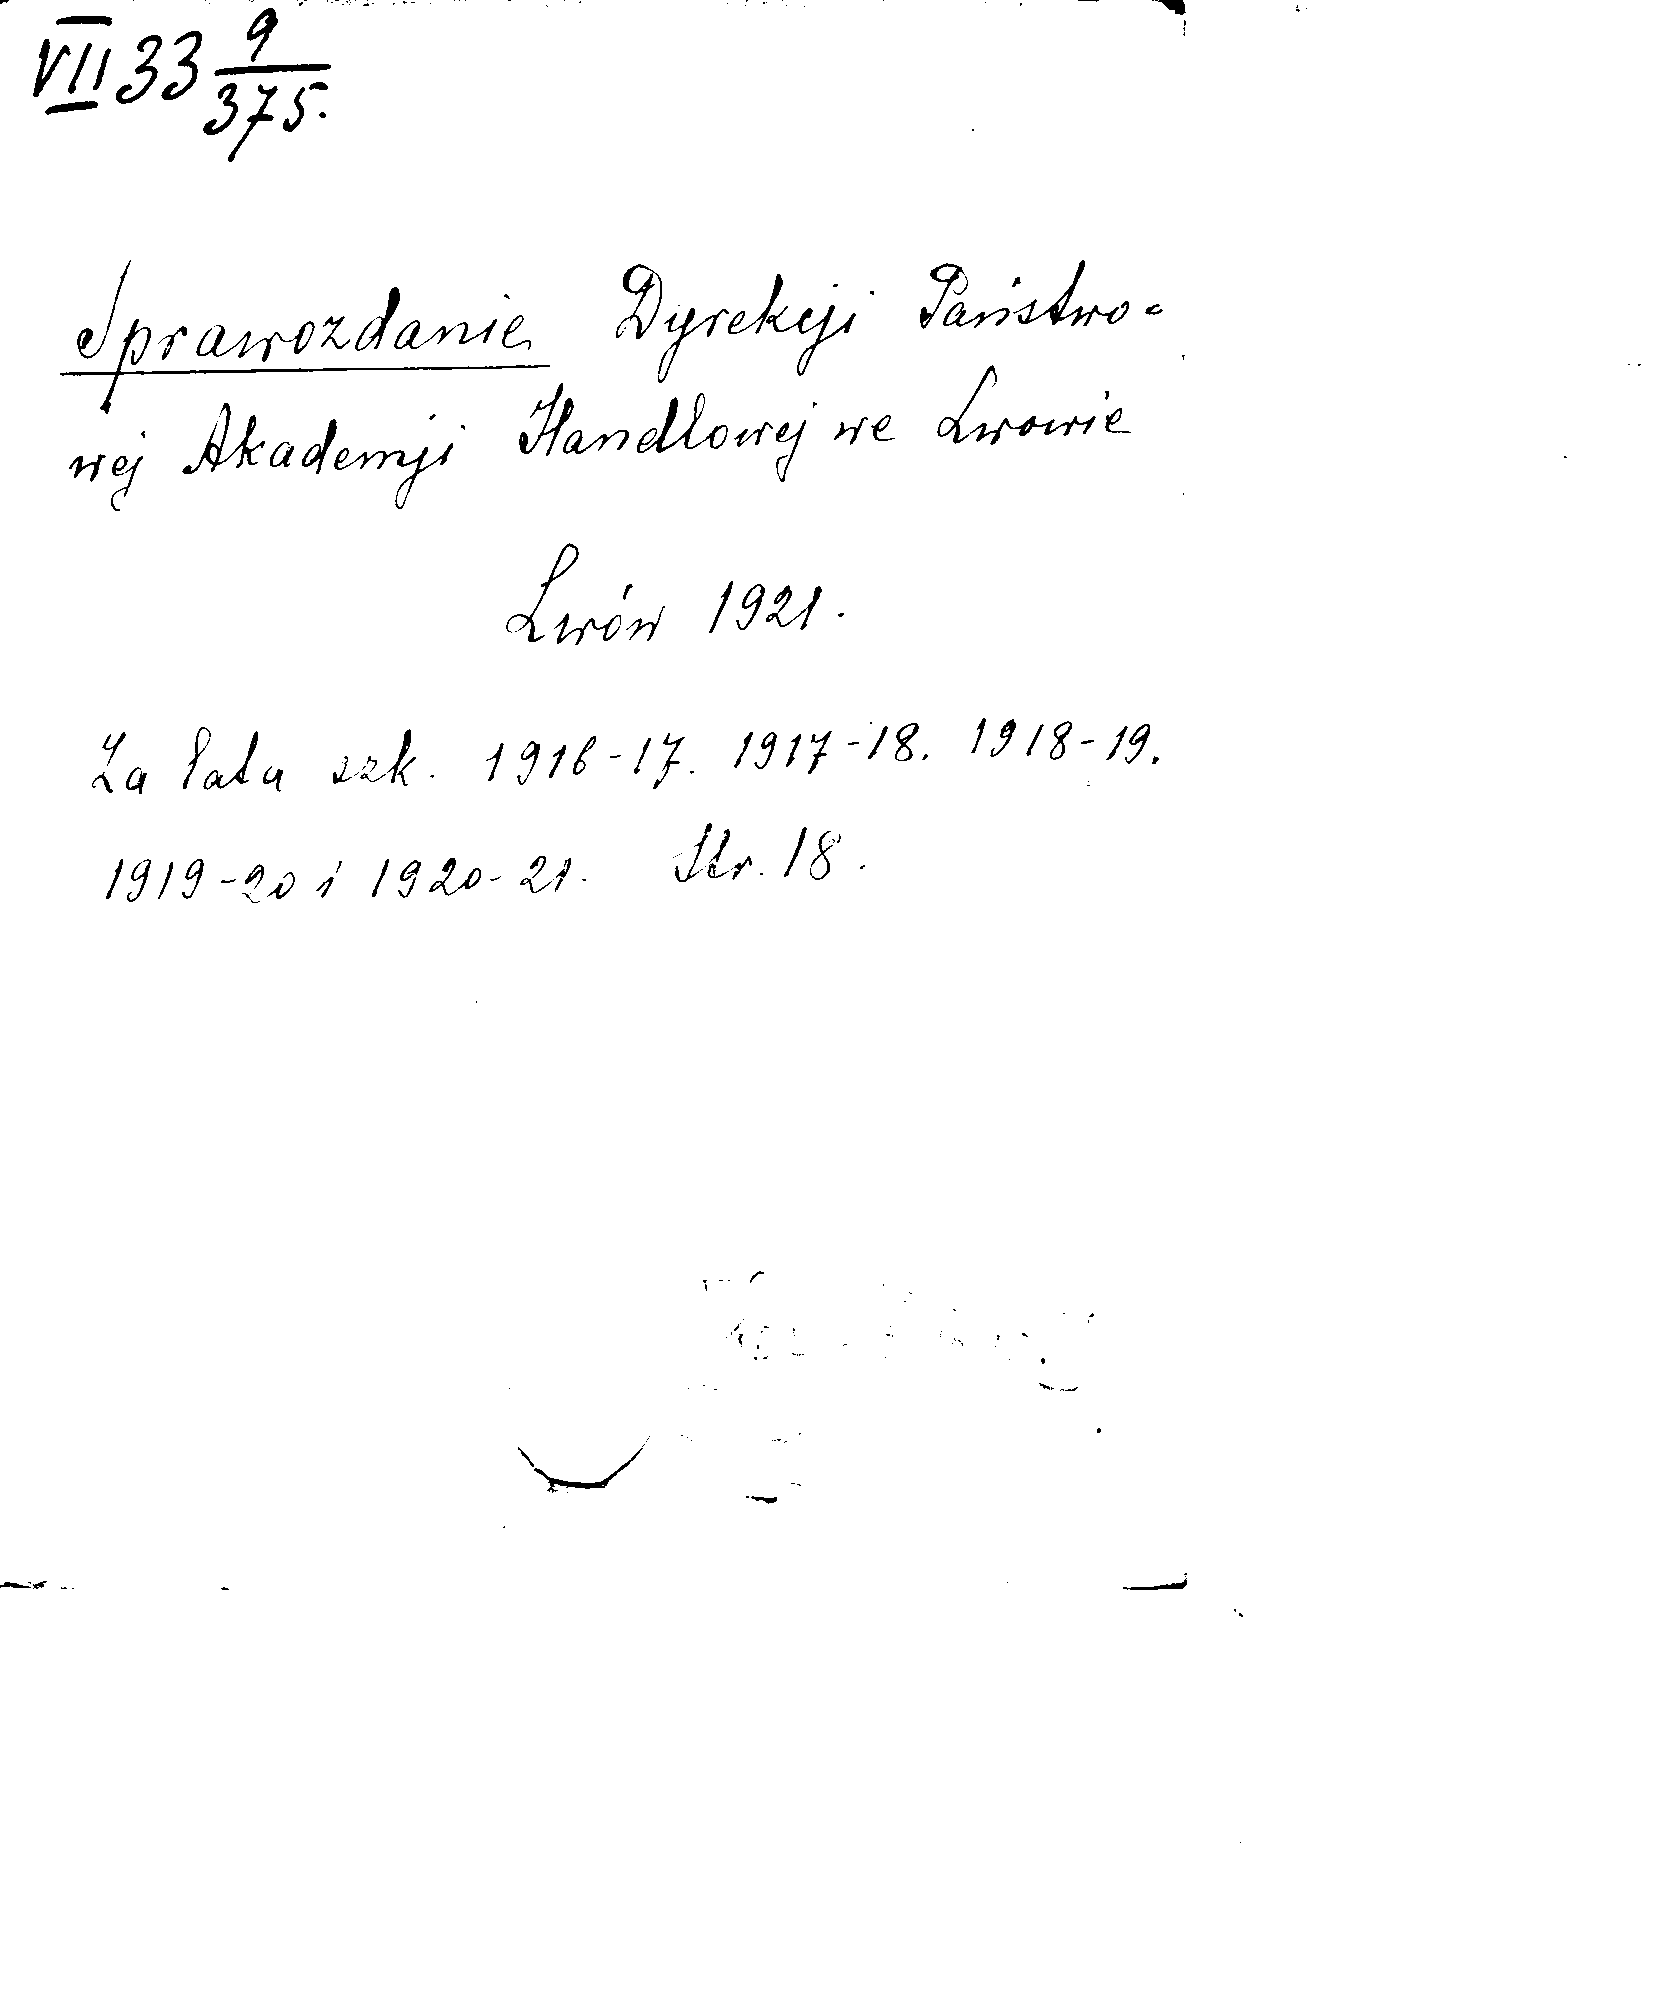 VII 33 9/375.
Sprawozdanie Dyrekcji Państwo-
wej Akademji Handlowej we Lwowie
Lwów 1921.
Za lata szk. 1916-17. 1917-18. 1918-19.
1919-20 i 1920-21. Str. 18.